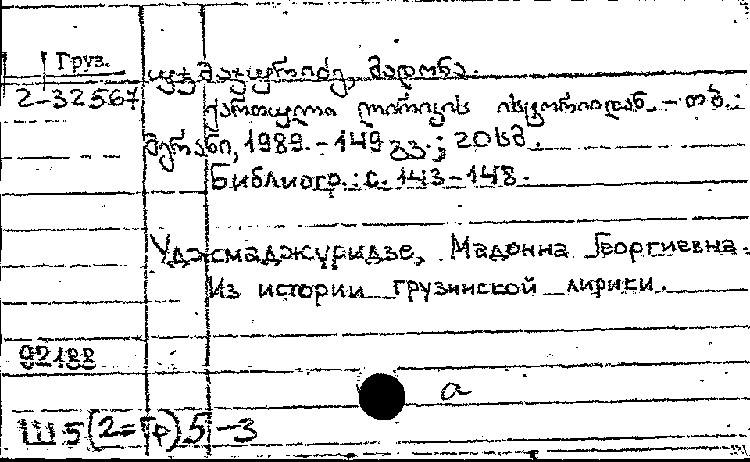 Груз.
2-32567
უჯმაჯურიძე, მადონა.
ქართული ლირიკის ისტორიიდან. - თბ.:
მერანი, 1989. - 149 გვ.; 20 სმ.
Библиогр.: с. 143-148.
Уджмаджуридзе, Мадонна Георгиевна.
Из истории грузинской лирики.
92188
a
Ш5(2=Гр)5-3